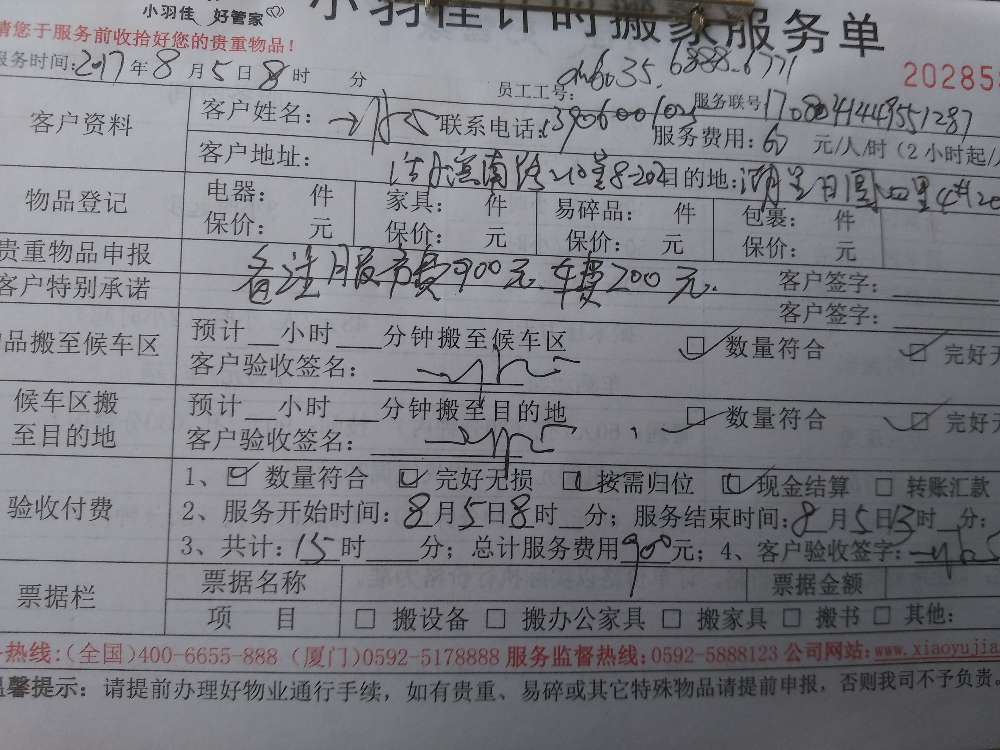 小羽佳 好管家
小羽佳计时搬家服务单
请您于服务前收拾好您的贵重物品！
服务时间：2017年8月5日8时 分
员工工号：
6888-6771
20285
客户资料
客户姓名： 联系电话：
服务联号
服务费用：60元/人/时（2小时起/
客户地址： 目的地：
物品登记
电器： 件 家具： 件 易碎品： 件 包裹： 件
保价： 元 保价： 元 保价： 元 保价： 元
贵重物品申报
备注服务费900元 车费200元.
客户签字：
客户特别承诺
客户签字：
品搬至候车区
预计__小时___分钟搬至候车区 数量符合 完好无
客户验收签名：
候车区搬至目的地
预计__小时___分钟搬至目的地 数量符合 完好无
客户验收签名：
验收付费
1、 数量符合 完好无损 按需归位 现金结算 转账汇款
2、服务开始时间：8月5日8时__分；服务结束时间：8月5日13时__分；
3、共计：15时___分；总计服务费用900元；4、客户验收签字：
票据栏
票据名称 票据金额
项 目 □ 搬设备 □ 搬办公家具 □ 搬家具 □ 搬书 □ 其他：
热线：（全国）400-6655-888（厦门）0592-5178888 服务监督热线：0592-5888123 公司网站：www.xiaoyujia
温馨提示：请提前办理好物业通行手续，如有贵重、易碎或其它特殊物品请提前申报，否则我司不予负责。